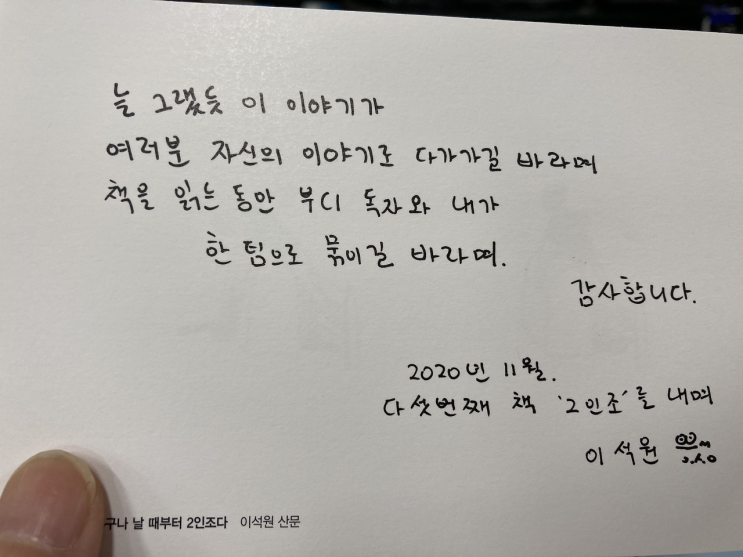 늘 그랬듯 이 이야기가
여러분 자신의 이야기로 다가가길 바라며
책을 읽는 동안 부디 독자와 내가
한 팀으로 묶이길 바라며.
감사합니다.
2020년 11월.
다섯번째 책 '2인조'를 내며
이석원
구나 날 때부터 2인조다 이석원 산문